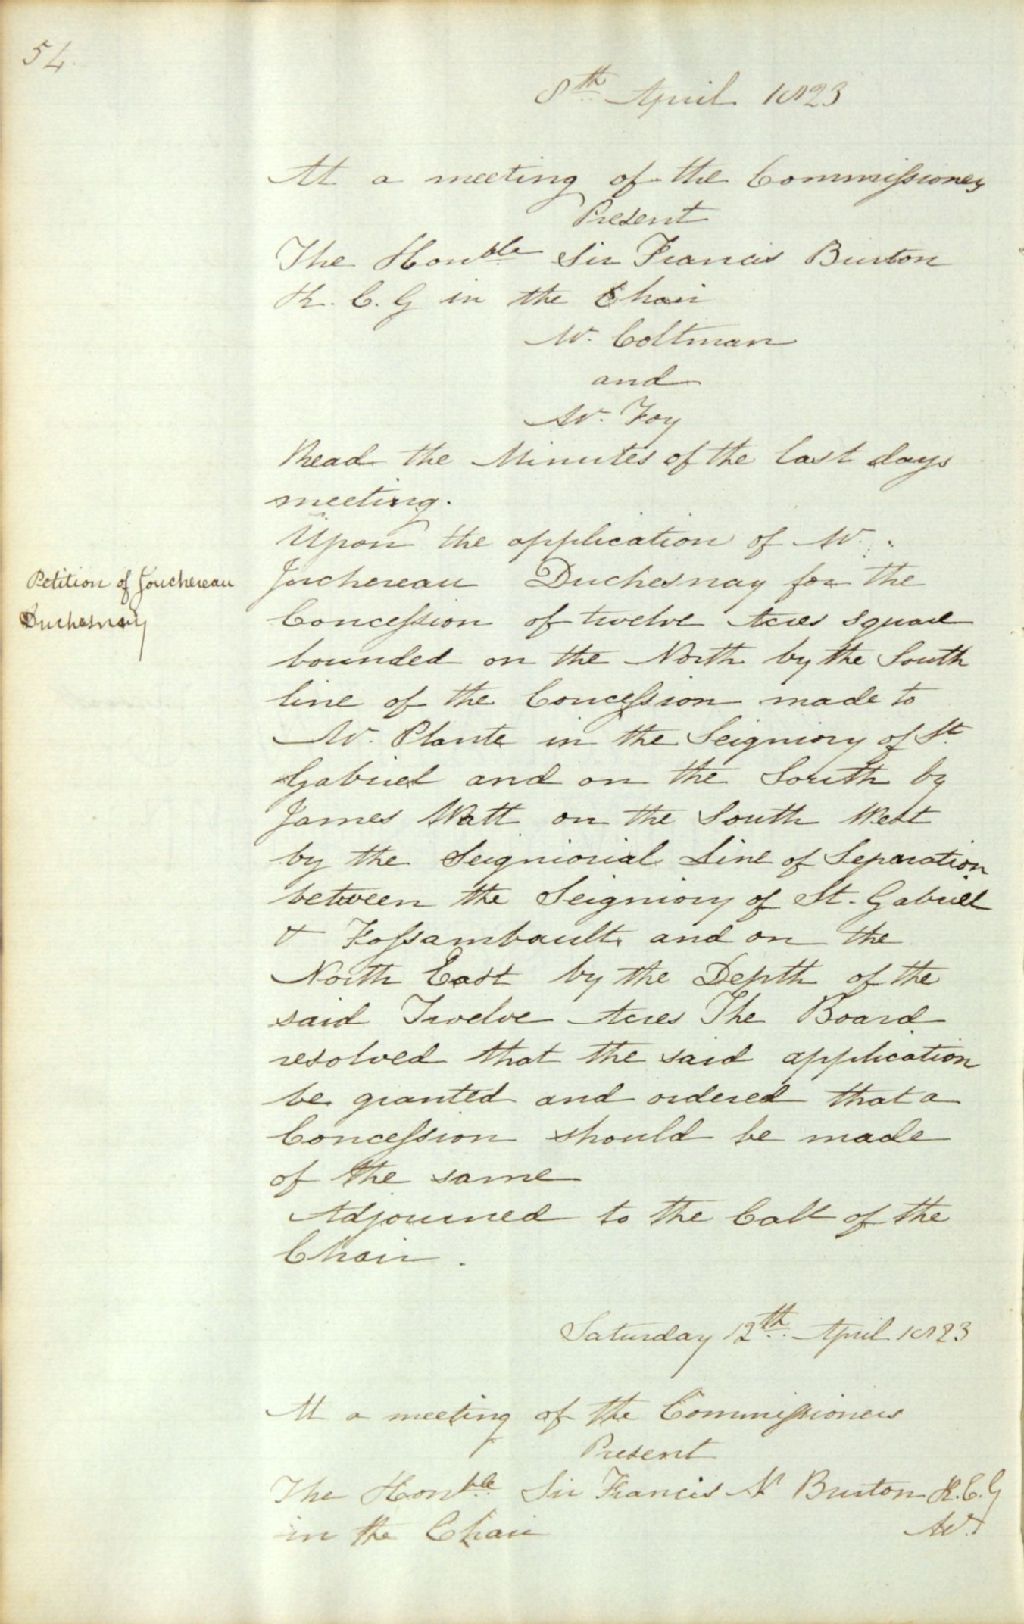 54.
8th April 1823
At a meeting of the Commissioners
Present
The Honble Sir Francis Burton
K. C. G in the Chair
Mr. Coltman
and
Mr. Foy
Read the Minutes of the last days
meeting.
Upon the application of Mr.
Petition of Jouchereau
Duchesnay
Juchereau Duchesnay for the
Concession of twelve Acres square
bounded on the North by the South
line of the Concession made to
Mr. Plante in the Seigniory of St.
Gabriel and on the South by
James Watt on the South West
by the Seigniorial Line of Separation
between the Seigniory of St. Gabriel
& Fossambault, and on the
North East by the Depth of the
said Twelve Acres The Board
resolved that the said application
be granted and ordered that a
Concession should be made
of the same
Adjourned to the Call of the
Chair.
Saturday 12th April 1823
At a meeting of the Commissioners
Present
The Honble Sir Francis N Burton K.C.G
in the Chair
Mr.